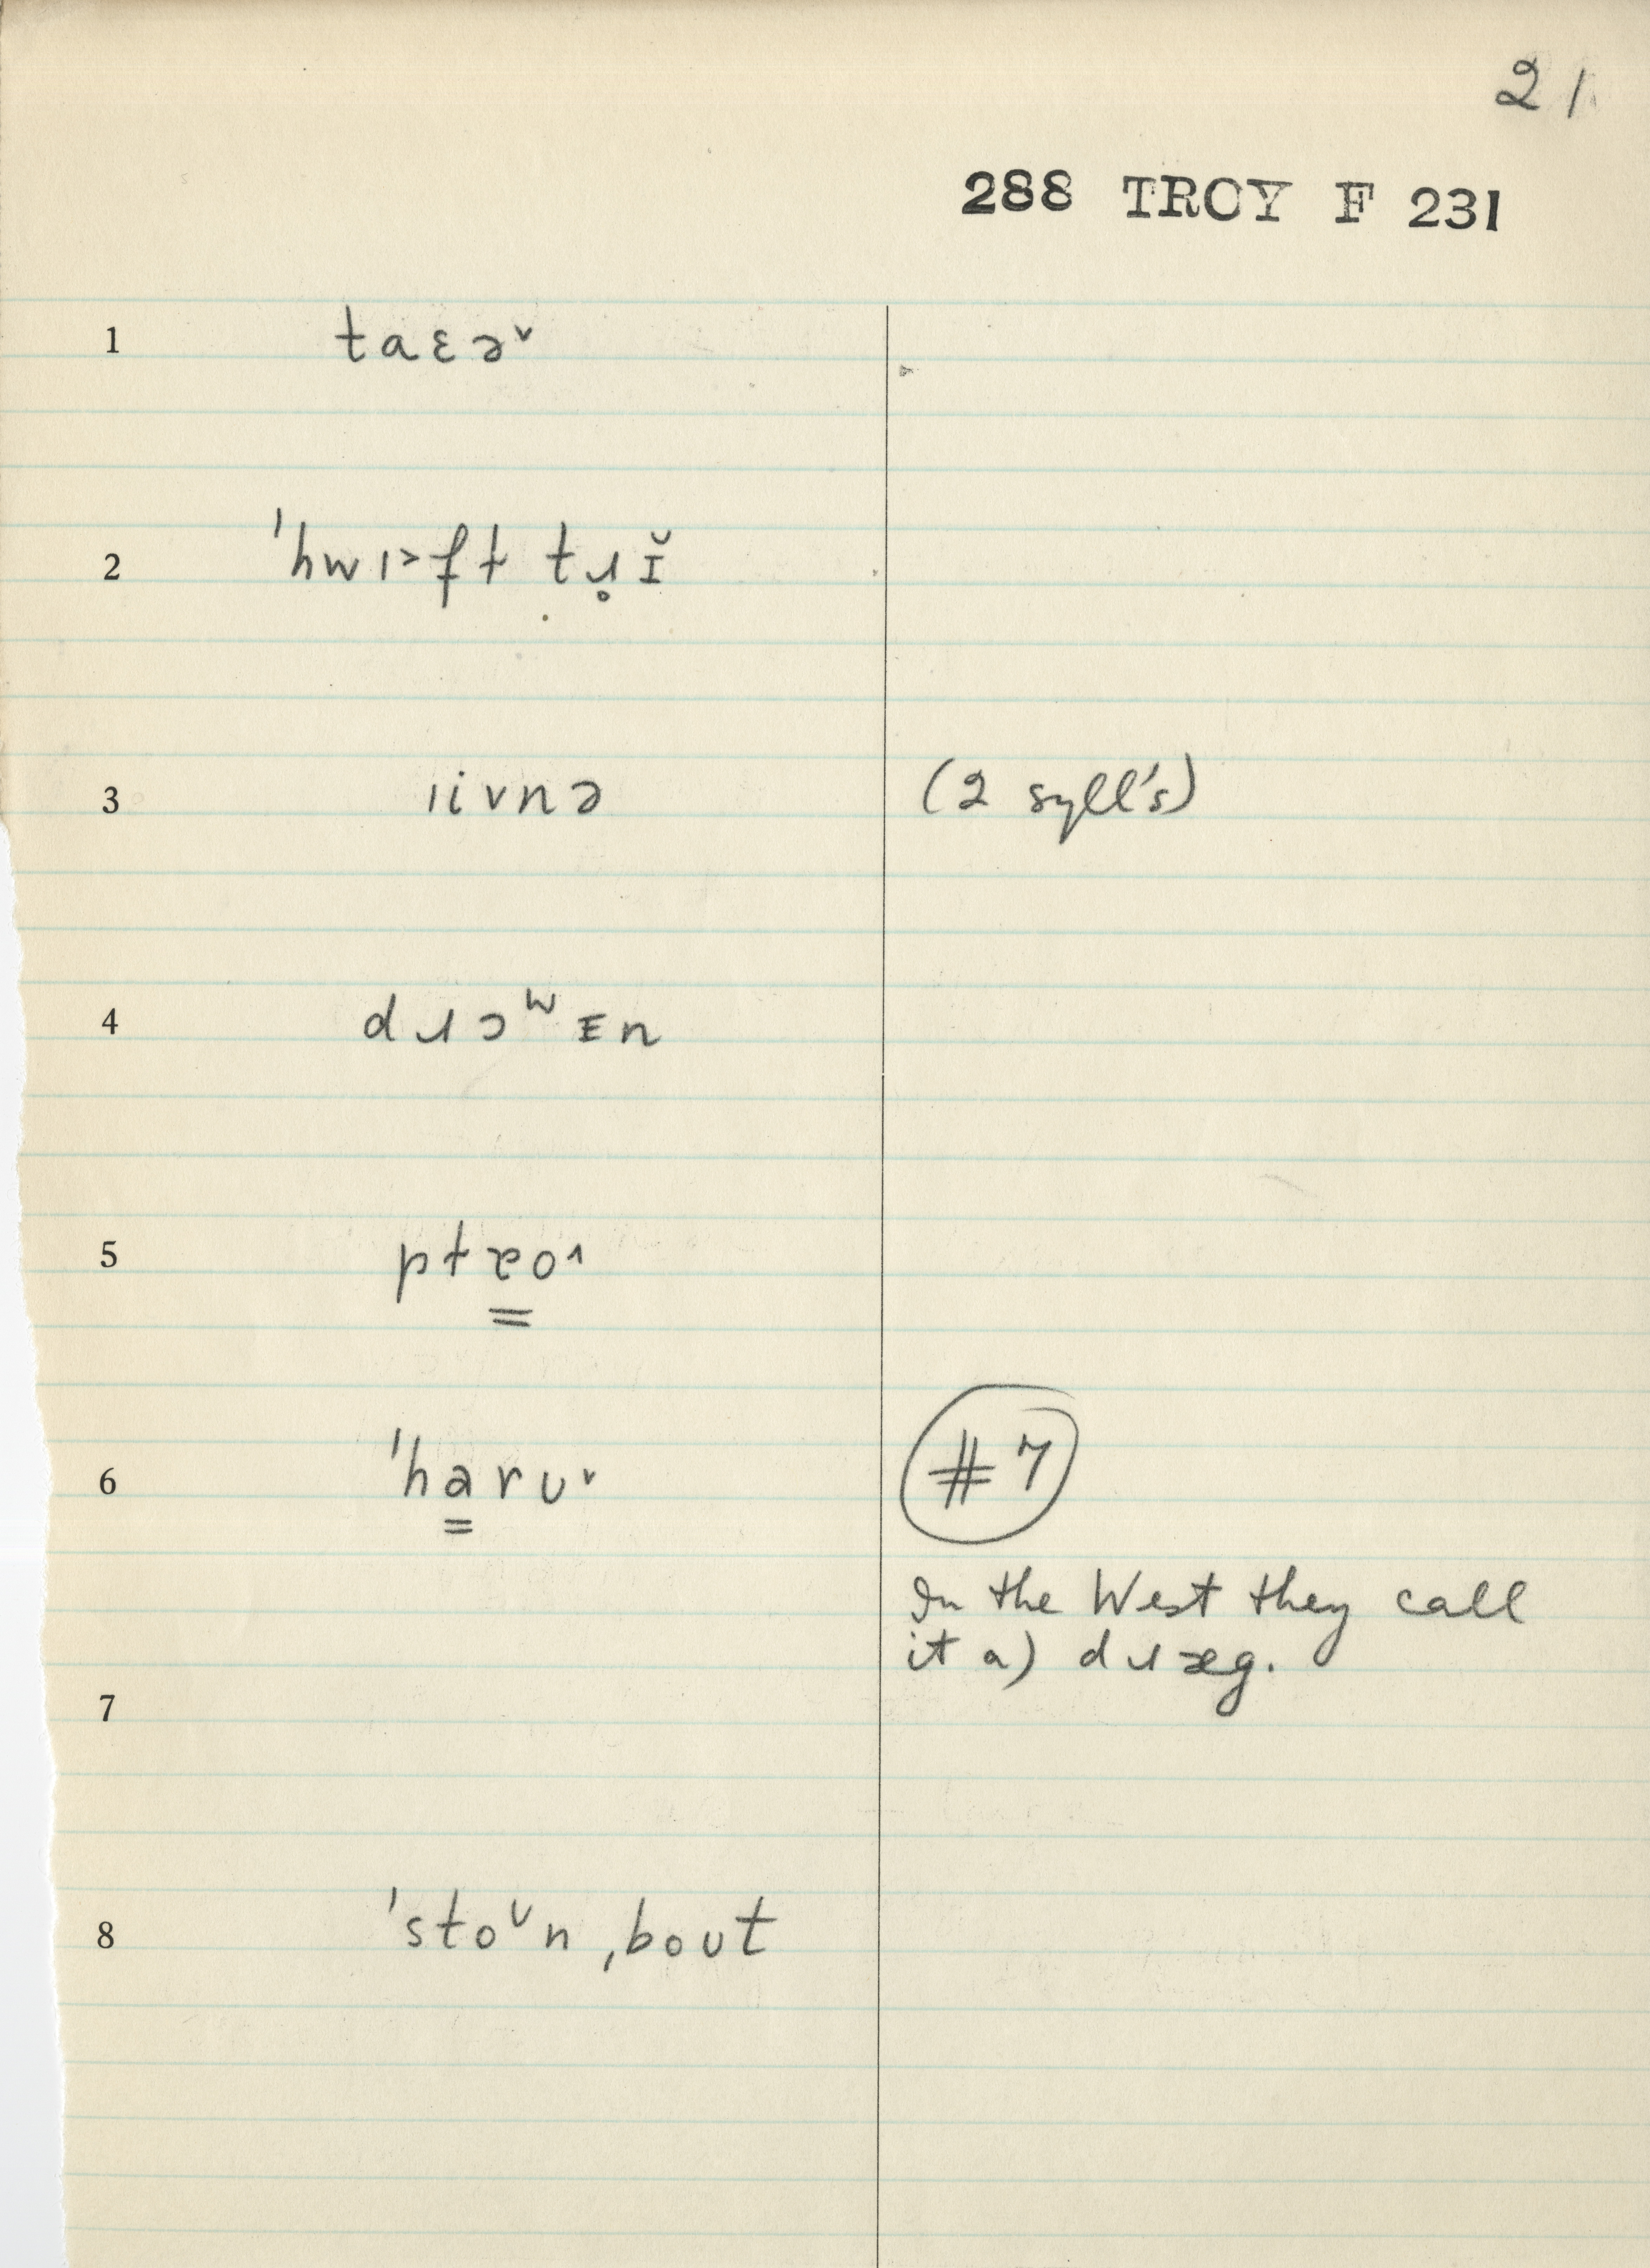 21
288 TROY F 231
1 taɛə˅
2 ˈhwɪ˃ft tɹ̥ɪ̆
3 ıivnə (2 syll's)
4 dɹɔʷɪn
5 ptɐo˄
6 ˈha̳rʊ˅ #7
In the West they call
it a) dɹæg.
7
8 ˈstoᶷn ˌboʊt